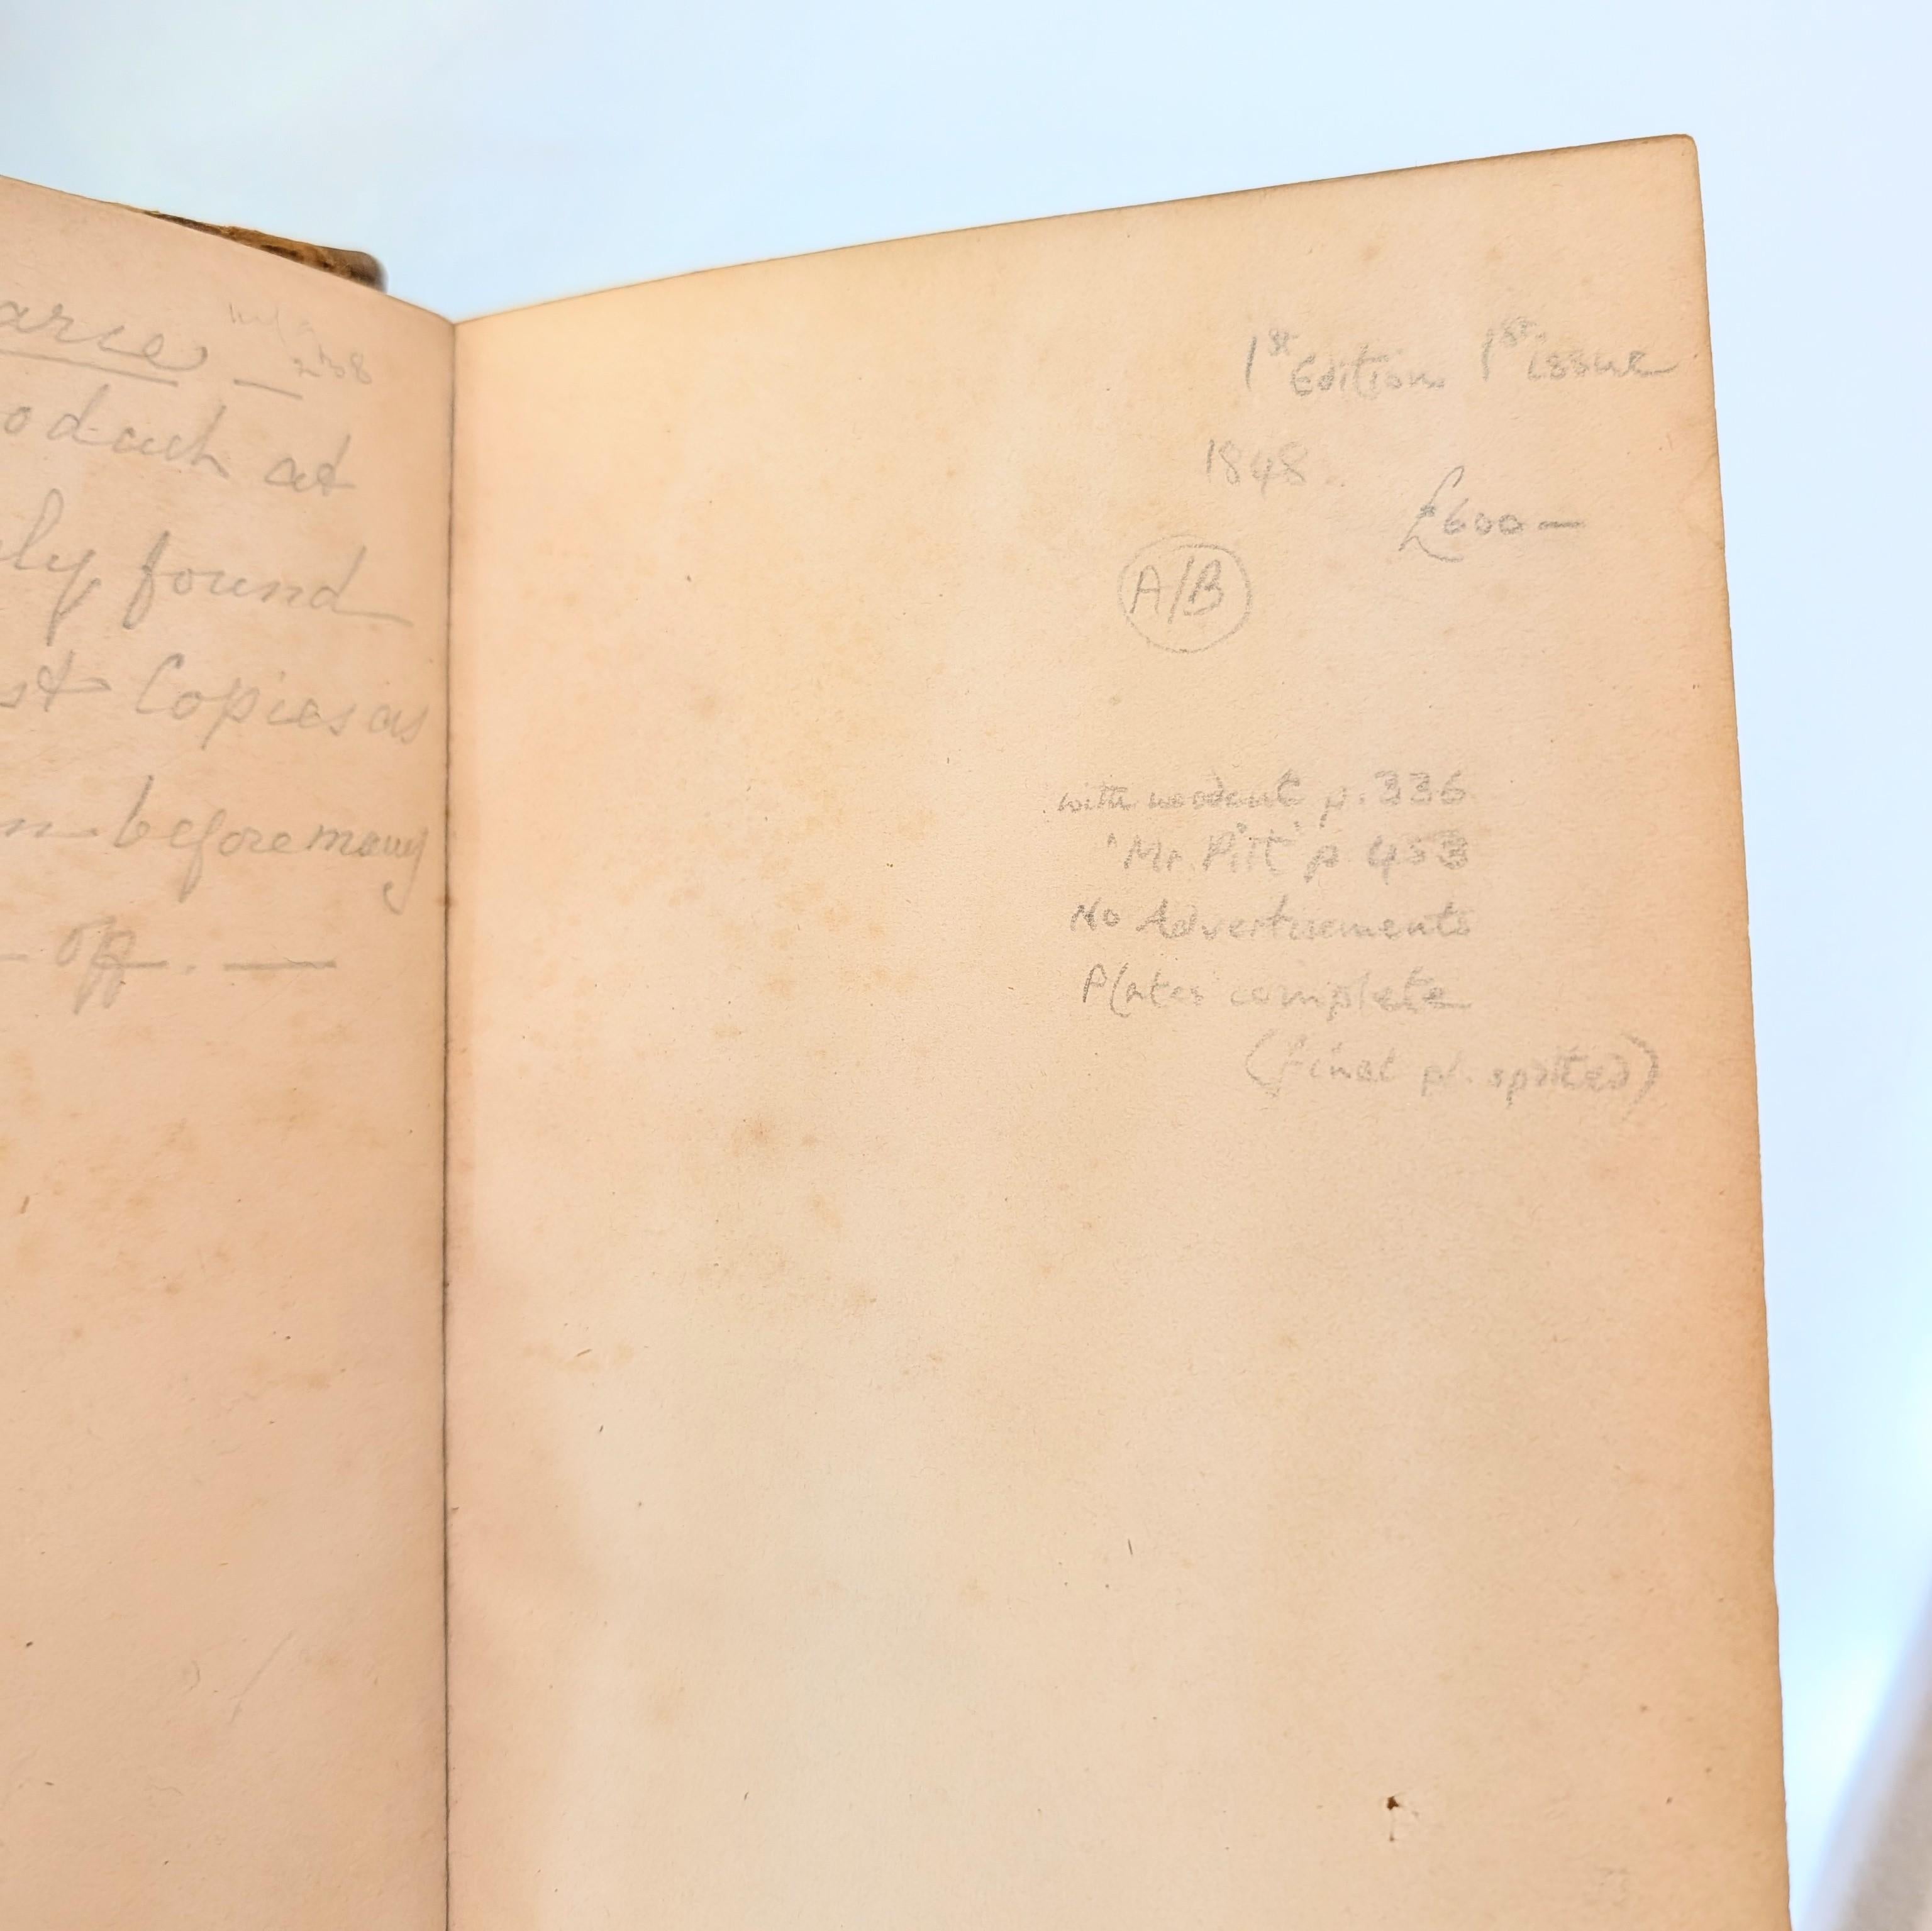 arce —
oduct at
ly found
st Copies as
n before many
— off. —
258
1st Edition 1st issue
1848.
£600—
A/B
with woodcut p. 336
'Mr. Pitt' p 453
No Advertisements
Plates complete
(final pl. spotted)